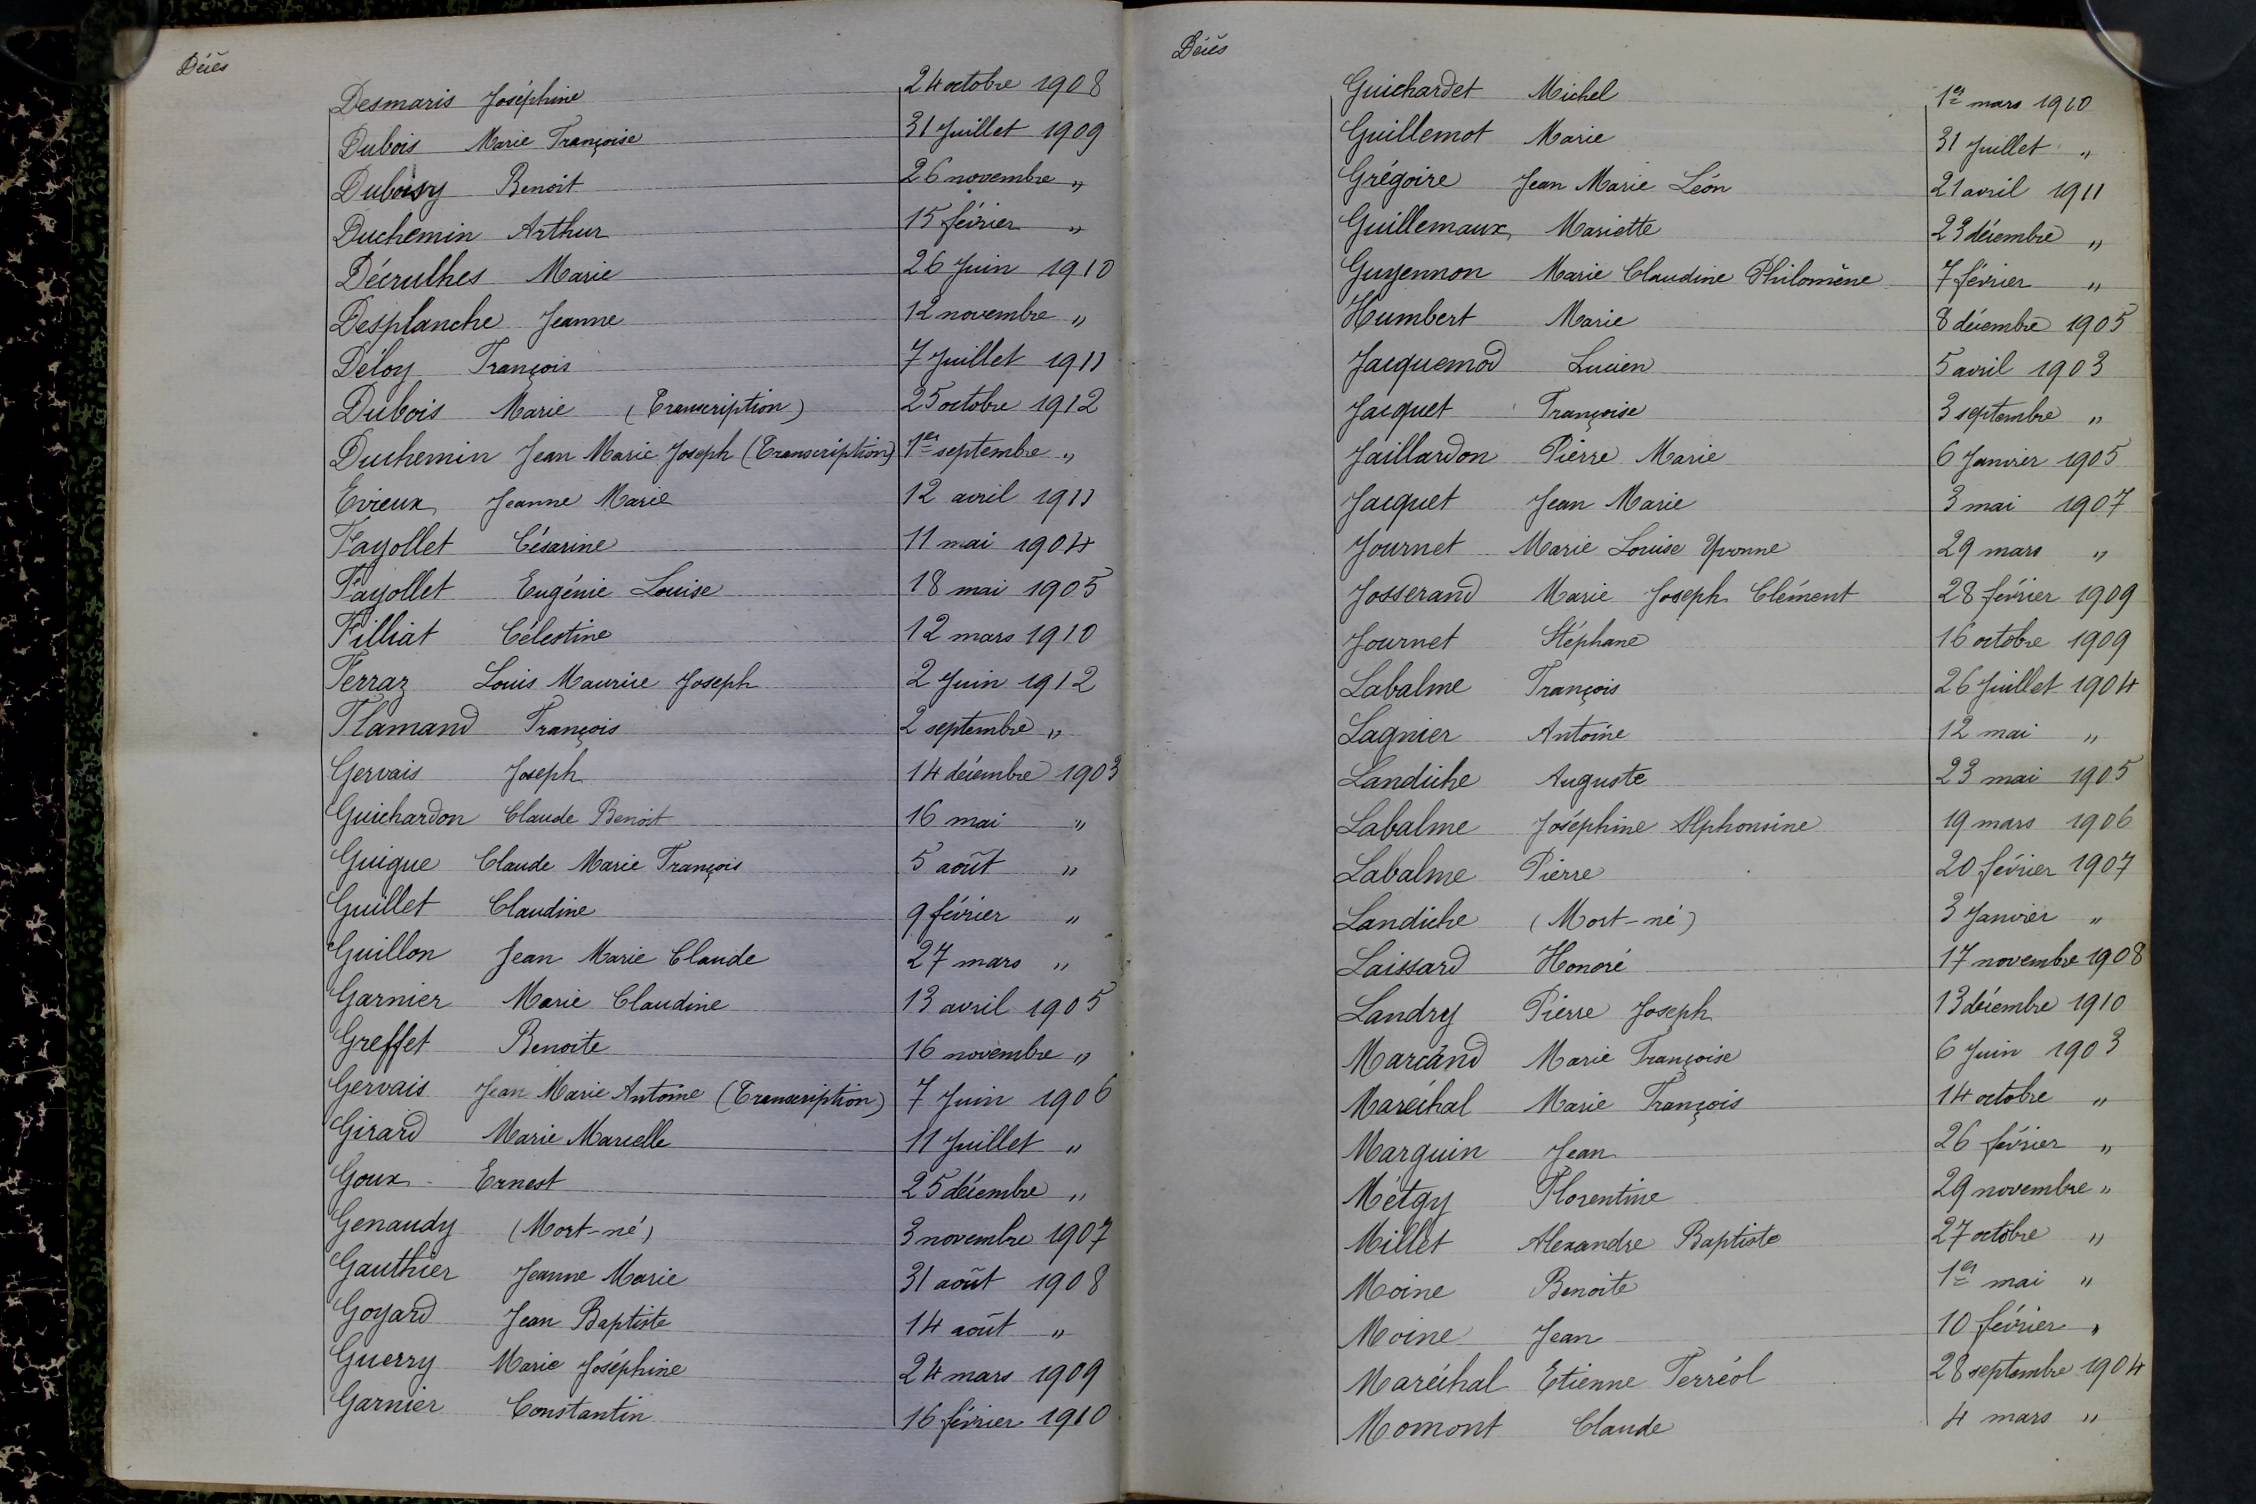 Décès
Desmaris Joséphine 24 octobre 1908
Dubois Marie Françoise 31 Juillet 1909
Duboisy Benoit 26 novembre "
Duchemin Arthur 15 février "
Décrulhes Marie 26 Juin 1910
Desplanche Jeanne 12 novembre "
Déloy François 7 Juillet 1911
Dubois Marie (Transcription) 25 octobre 1912
Duchemin Jean Marie Joseph (Transcription) 1er septembre "
Evieux Jeanne Marie 12 avril 1911
Fayollet Césarine 11 mai 1904
Fayollet Eugénie Louise 18 mai 1905
Filliat Célestine 12 mars 1910
Ferraz Louis Maurice Joseph 2 Juin 1912
Flamand François 2 septembre "
Gervais Joseph 14 décembre 1903
Guichardon Claude Benoit 16 mai "
Guigue Claude Marie François 5 août "
Guillet Claudine 9 février "
Guillon Jean Marie Claude 27 mars "
Garnier Marie Claudine 13 avril 1905
Greffet Benoite 16 novembre "
Gervais Jean Marie Antoine (Transcription) 7 Juin 1906
Girard Marie Marcelle 11 Juillet "
Goux Ernest 25 décembre "
Genaudy (Mort-né) 3 novembre 1907
Gauthier Jeanne Marie 31 août 1908
Goyard Jean Baptiste 14 août "
Guerry Marie Joséphine 24 mars 1909
Garnier Constantin 16 février 1910
Décès
Guichardet Michel 1er mars 1910
Guillemot Marie 31 Juillet "
Grégoire Jean Marie Léon 21 avril 1911
Guillemaux Mariette 23 décembre "
Guyennon Marie Claudine Philomène 7 février "
Humbert Marie 8 décembre 1905
Jacquemod Lucien 5 avril 1903
Jacquet Françoise 3 septembre "
Jaillardon Pierre Marie 6 Janvier 1905
Jacquet Jean Marie 3 mai 1907
Journet Marie Louise Yvonne 29 mars "
Josserand Marie Joseph Clément 28 février 1909
Journet Stéphane 16 octobre 1909
Labalme François 26 Juillet 1904
Lagnier Antoine 12 mai "
Landiche Auguste 23 mai 1905
Labalme Joséphine Alphonsine 19 mars 1906
Labalme Pierre 20 février 1907
Landiche (Mort-né) 3 Janvier "
Laissard Honoré 17 novembre 1908
Landry Pierre Joseph 13 décembre 1910
Marcand Marie Françoise 6 Juin 1903
Maréchal Marie François 14 octobre "
Marguin Jean 26 février "
Métgy Florentine 29 novembre "
Millet Alexandre Baptiste 27 octobre "
Moine Benoite 1er mai "
Moine Jean 10 février "
Maréchal Etienne Ferréol 28 septembre 1904
Momont Claude 4 mars "